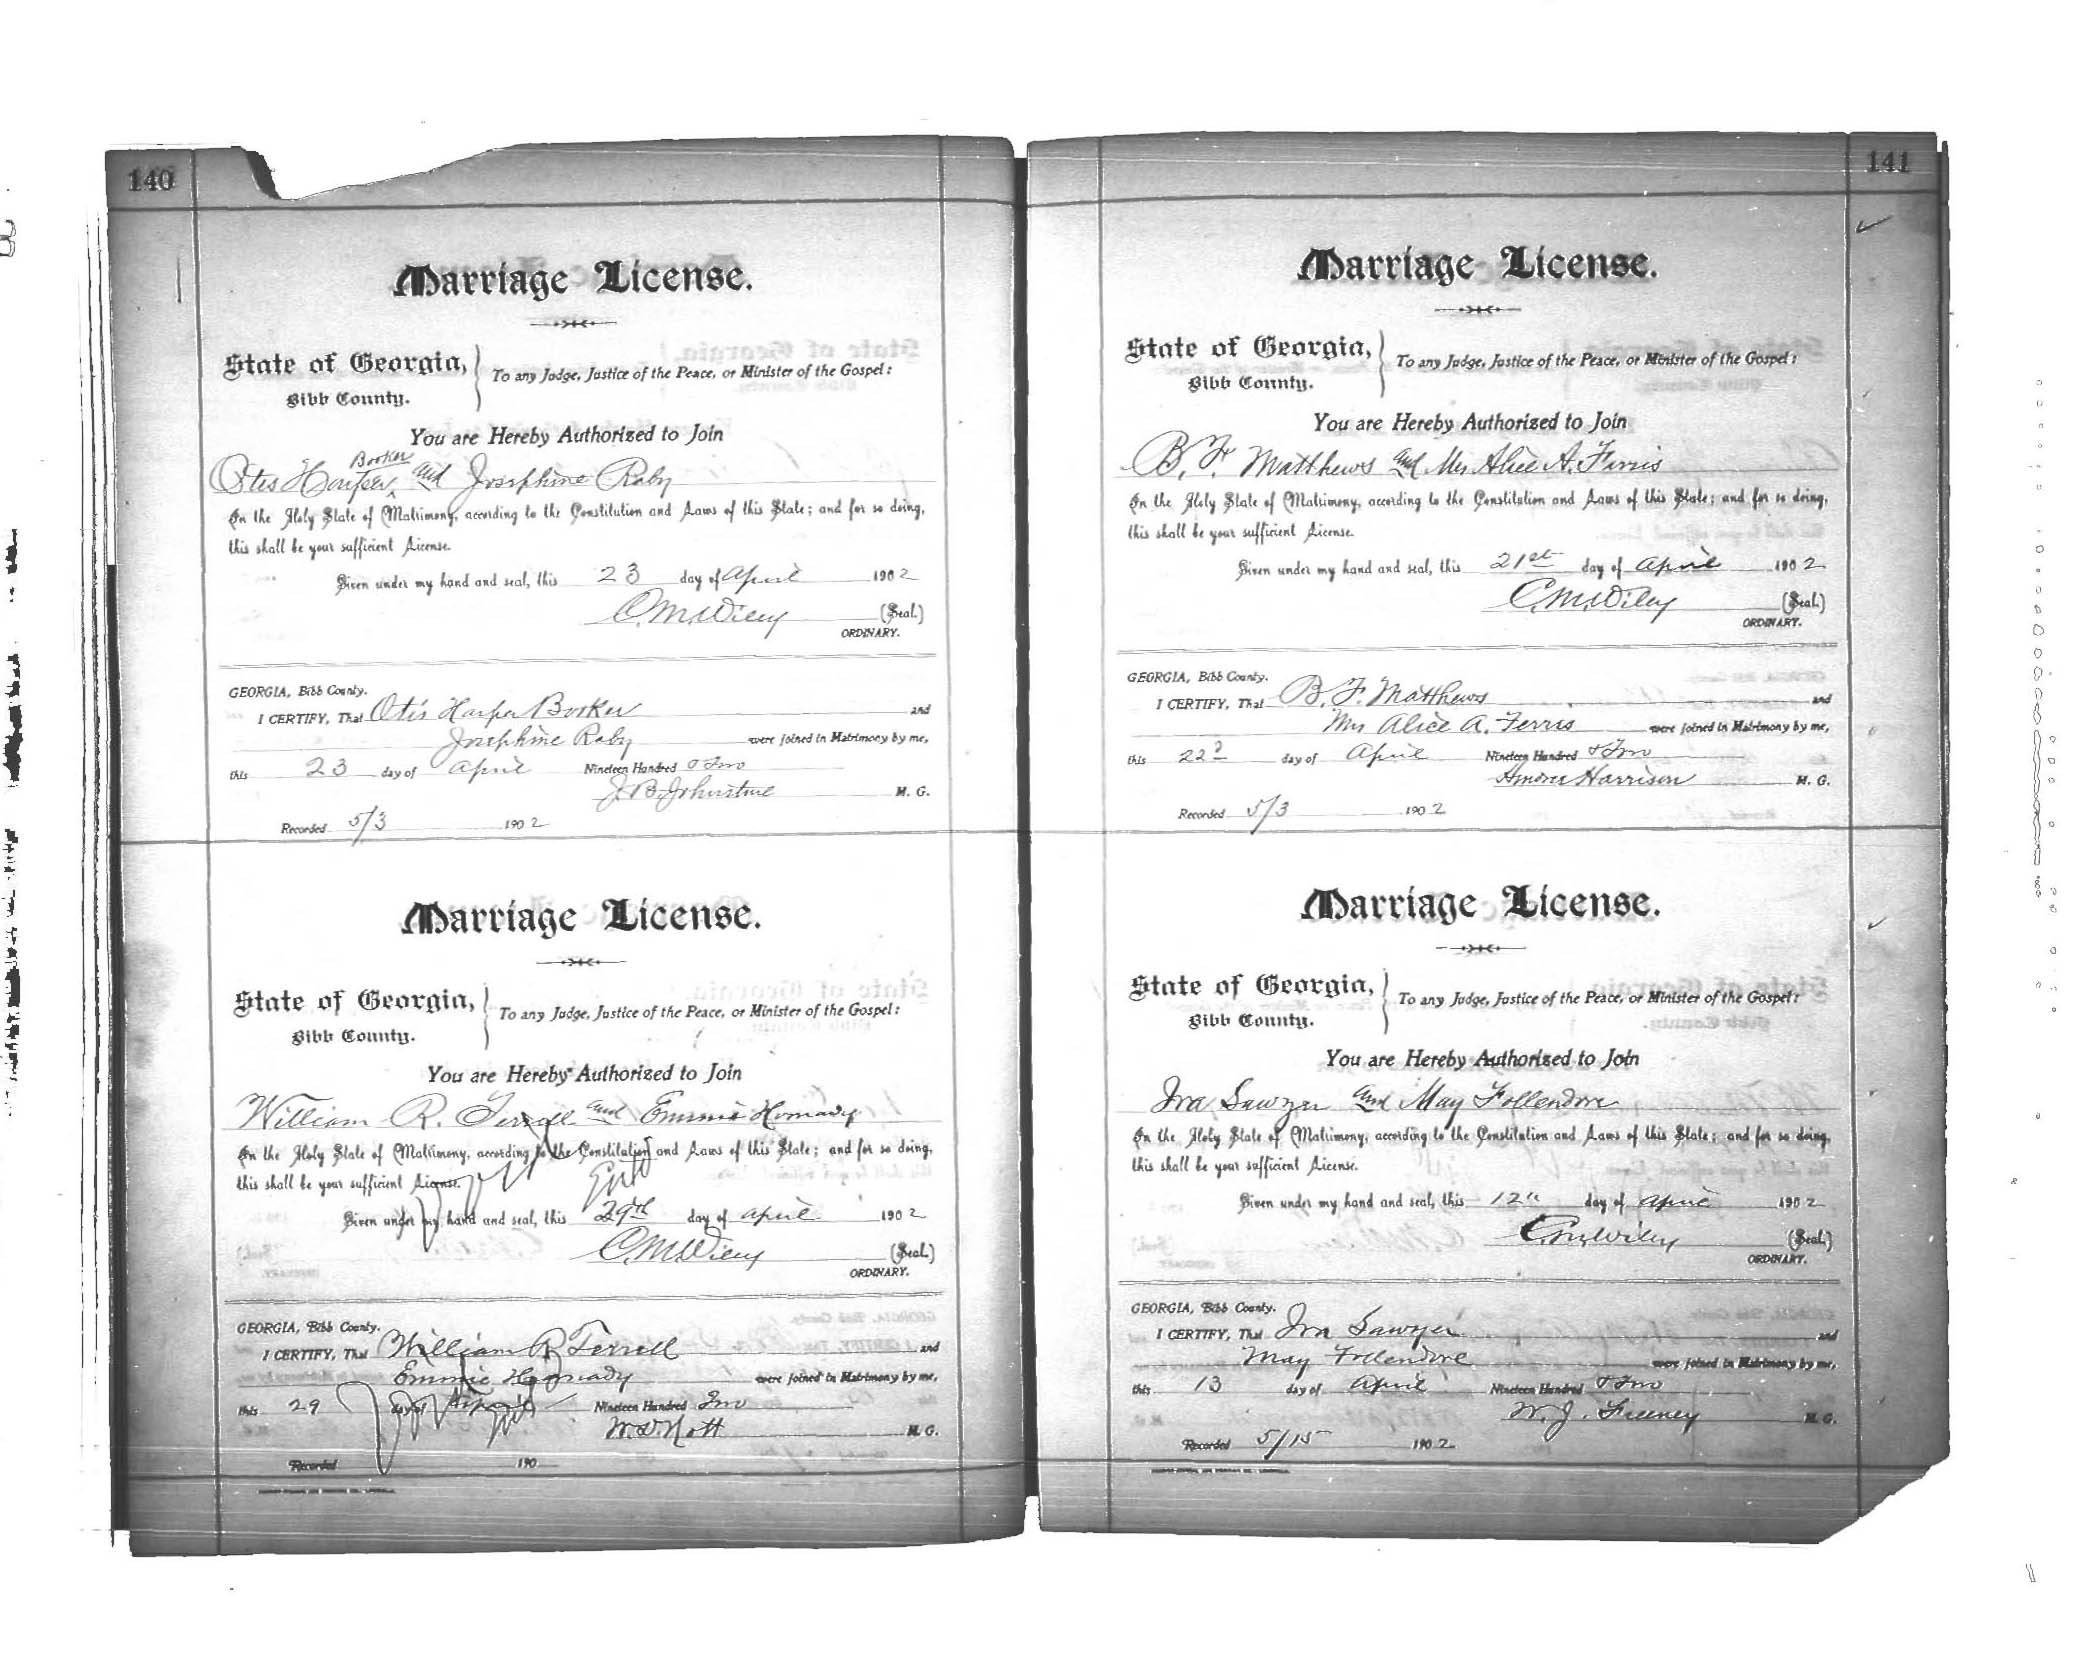 140
Marriage License.
State of Georgia,
Bibb County.
To any Judge, Justice of the Peace, or Minister of the Gospel:
You are Hereby Authorized to Join
Booker
Otis Harper and Josephine Raby
In the Holy State of Matrimony, according to the Constitution and Laws of this State; and for so doing,
this shall be your sufficient License.
Given under my hand and seal, this 23 day of April 1902
C. M. Wiley (Seal.)
ORDINARY.
GEORGIA, Bibb County.
I CERTIFY, That Otis Harper Booker and
Josephine Raby were joined in Matrimony by me,
this 23 day of April Nineteen Hundred & Two
J. B. Johnstone M. G.
Recorded 5/3 1902
Marriage License.
State of Georgia,
Bibb County.
To any Judge, Justice of the Peace, or Minister of the Gospel:
You are Hereby Authorized to Join
William R. Terrell and Emmie Homady
In the Holy State of Matrimony, according to the Constitution and Laws of this State; and for so doing,
this shall be your sufficient License.
Given under my hand and seal, this 29th day of April 1902
C. M. Wiley (Seal.)
ORDINARY.
GEORGIA, Bibb County.
I CERTIFY, That William R Terrell and
Emmie Homady were joined in Matrimony by me,
this 29 day of April Nineteen Hundred Two
W. D. Nott M. G.
Recorded 190
141
Marriage License.
State of Georgia,
Bibb County.
To any Judge, Justice of the Peace, or Minister of the Gospel:
You are Hereby Authorized to Join
B. F. Matthews and Mrs Alice A. Ferris
In the Holy State of Matrimony, according to the Constitution and Laws of this State; and for so doing,
this shall be your sufficient License.
Given under my hand and seal, this 21st day of April 1902
C. M. Wiley (Seal.)
ORDINARY.
GEORGIA, Bibb County.
I CERTIFY, That B. F. Matthews and
Mrs Alice A. Ferris were joined in Matrimony by me,
this 22 day of April Nineteen Hundred & Two
Harrison M. G.
Recorded 5/3 1902
Marriage License.
State of Georgia,
Bibb County.
To any Judge, Justice of the Peace, or Minister of the Gospel:
You are Hereby Authorized to Join
Ira Sawyer and May Follendore
In the Holy State of Matrimony, according to the Constitution and Laws of this State; and for so doing,
this shall be your sufficient License.
Given under my hand and seal, this 12" day of April 1902
C. M. Wiley (Seal.)
ORDINARY.
GEORGIA, Bibb County.
I CERTIFY, That Ira Sawyer and
May Follendore were joined in Matrimony by me,
this 13 day of April Nineteen Hundred & Two
W. J. Feeney M. G.
Recorded 5/15 1902